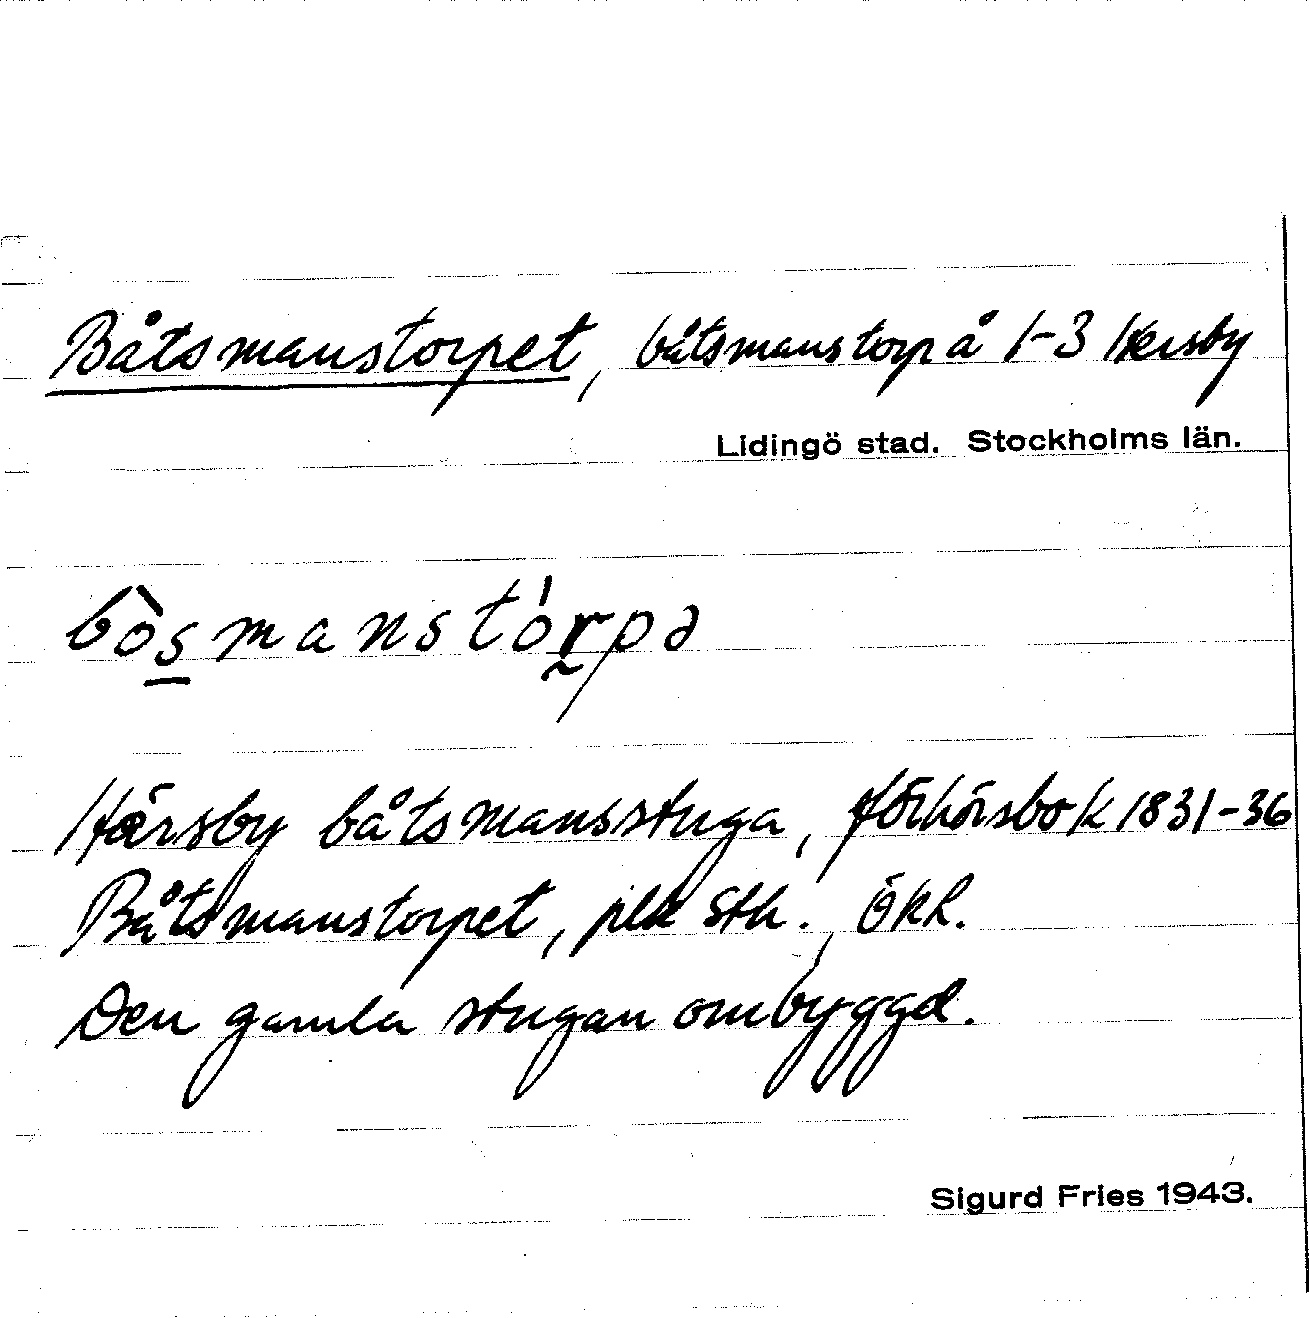 Båtsmanstorpet, båtsmanstorp å 1-3 Hersby
Lidingö stad. Stockholms län.
bòsmanstórpə
Härsby båtsmansstuga, förhörsbok 1831-36
Båtsmanstorpet, plk Sth., ökk.
Den gamla stugan ombyggd.
Sigurd Fries 1943.